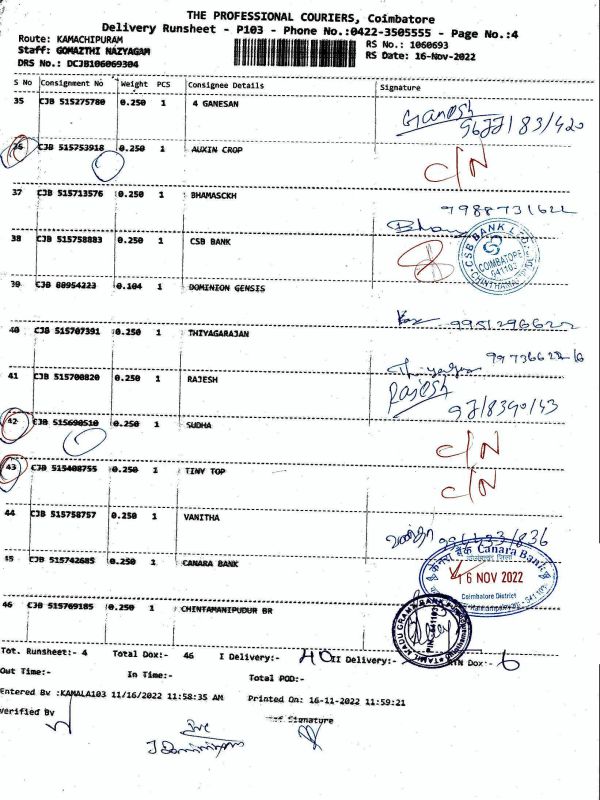 THE PROFESSIONAL COURIERS, Coimbatore
Delivery Runsheet - P103 - Phone No.:0422-3505555 - Page No.:4
Route: KAMACHIPURAM
RS No.: 1060693
Staff: GOMATHI NAZYAGAM
RS Date: 16-Nov-2022
DRS No.: DCJB106069304
S No Consignment No Weight PCS Consignee Details Signature
35 CJB 515275780 0.250 1 4 GANESAN Ganesh
36 CJB 515753918 0.250 1 AUXIN CROP C/N
37 CJB 515713576 0.250 1 BHAMASCKH 7988731622
38 CJB 515758883 0.250 1 CSB BANK
CSB BANK LTD COIMBATORE 641103
39 CJB 80954223 0.104 1 DOMINION GENSIS 9951296622
40 CJB 515707391 0.250 1 THIYAGARAJAN
41 CJB 515700820 0.250 1 RAJESH Rajesh
42 CJB 515690510 0.250 1 SUDHA C/N
43 CJB 515408755 0.250 1 TINY TOP C/N
44 CJB 515758757 0.250 1 VANITHA
45 CJB 515742685 0.250 1 CANARA BANK
केनरा बैंक Canara Bank
16 NOV 2022
Coimbatore District
46 CJB 515769185 0.250 1 CHINTAMANIPUDUR BR
TAMIL NADU GRAMA BANK
Tot. Runsheet:- 4 Total Dox:- 46 I Delivery:- 40 II Delivery:- RTN Dox:- 6
Out Time:- In Time:- Total POD:-
Entered By :KAMALA103 11/16/2022 11:58:35 AM Printed On: 16-11-2022 11:59:21
Verified By Signature